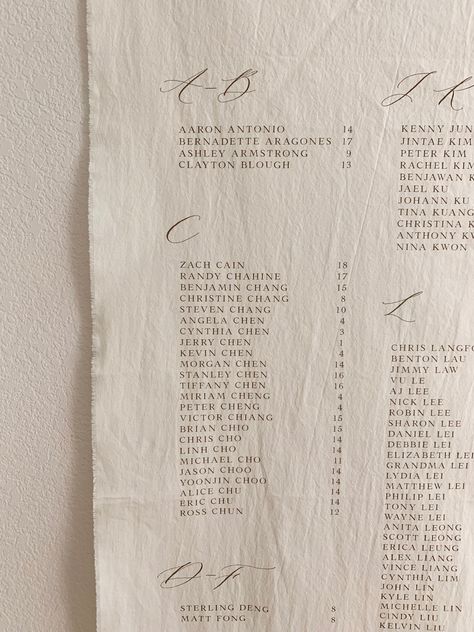 A-B
AARON ANTONIO 14
BERNADETTE ARAGONES 17
ASHLEY ARMSTRONG 9
CLAYTON BLOUGH 13
C
ZACH CAIN 18
RANDY CHAHINE 17
BENJAMIN CHANG 15
CHRISTINE CHANG 8
STEVEN CHANG 10
ANGELA CHEN 4
CYNTHIA CHEN 3
JERRY CHEN 1
KEVIN CHEN 4
MORGAN CHEN 14
STANLEY CHEN 16
TIFFANY CHEN 16
MIRIAM CHENG 4
PETER CHENG 4
VICTOR CHIANG 15
BRIAN CHIO 15
CHRIS CHO 14
LINH CHO 14
MICHAEL CHO 11
JASON CHOO 14
YOONJIN CHOO 14
ALICE CHU 14
ERIC CHU 14
ROSS CHUN 12
D-F
STERLING DENG 8
MATT FONG 8
J K
KENNY JUN
JINTAE KIM
PETER KIM
RACHEL KIM
BENJAWAN K
JAEL KU
JOHANN KU
TINA KUANG
CHRISTINA K
ANTHONY KW
NINA KWON
L
CHRIS LANGFO
BENTON LAU
JIMMY LAW
VU LE
AJ LEE
NICK LEE
ROBIN LEE
SHARON LEE
DANIEL LEI
DEBBIE LEI
ELIZABETH LEI
GRANDMA LEI
LYDIA LEI
MATTHEW LEI
PHILIP LEI
TONY LEI
WAYNE LEI
ANITA LEONG
SCOTT LEONG
ERICA LEUNG
ALEX LIANG
VINCE LIANG
CYNTHIA LIM
JOHN LIN
KYLE LIN
MICHELLE LIN
CINDY LIU
KELVIN LIU